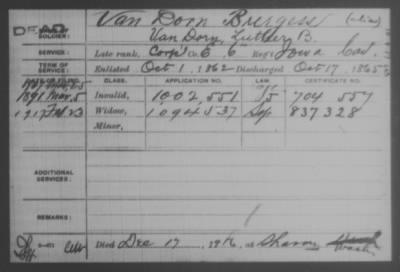 DEAD
Van Dorn Burgess (alias)
SOLDIER: Van Dorn, Luther B.
SERVICE: Late rank, Corp'l Co. E, 6" Reg't Iowa Cav.
TERM OF SERVICE: Enlisted Oct 1, 1862 Discharged Oct 17, 1865
DATE OF FILING. CLASS. APPLICATION NO. CERTIFICATE NO.
1891 Mar, 5 Invalid, 1002,551 704 557
1917 Widow, 1094537 837328
Minor,
ADDITIONAL SERVICES:
REMARKS:
Died Dec 17, 1916, at Sharon Wash